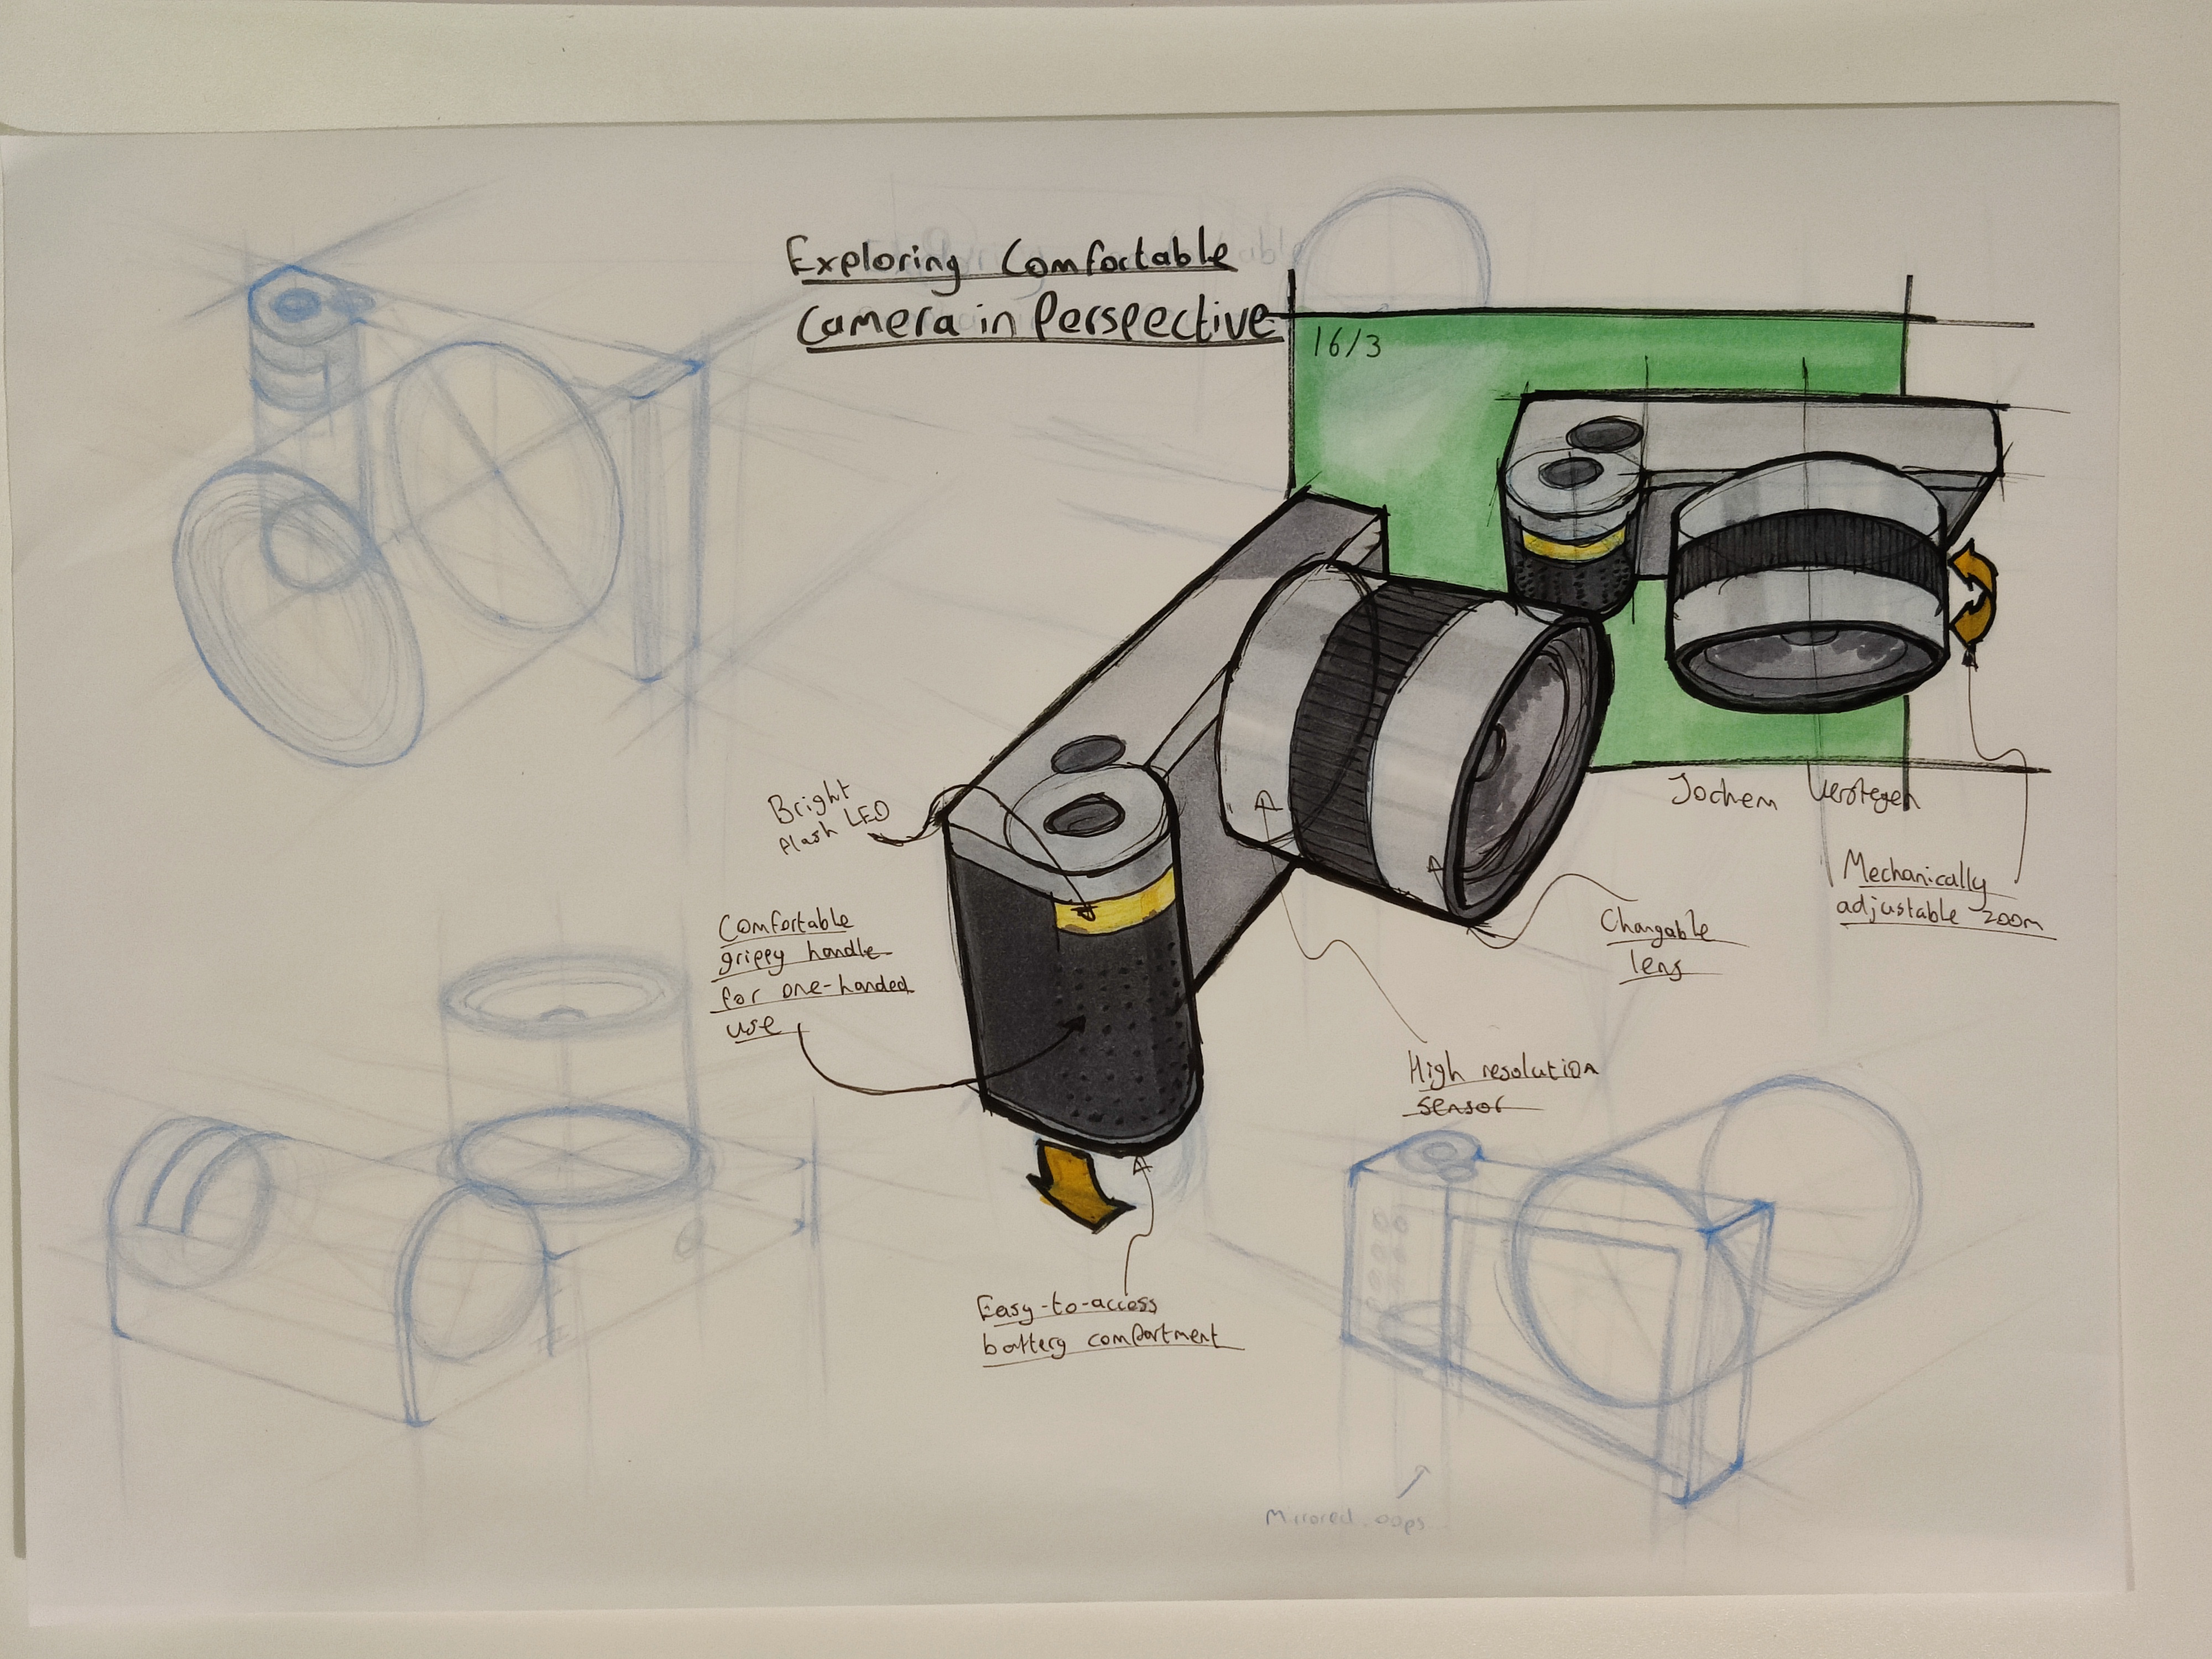 Exploring Comfortable
Camera in Perspective
16/3
Jochem Verstegen
Bright
flash LED
Comfortable
grippy handle
for one-handed
use
Mechanically
adjustable zoom
Changable
lens
High resolution
sensor
Easy-to-access
battery compartment
Mirrored. oops